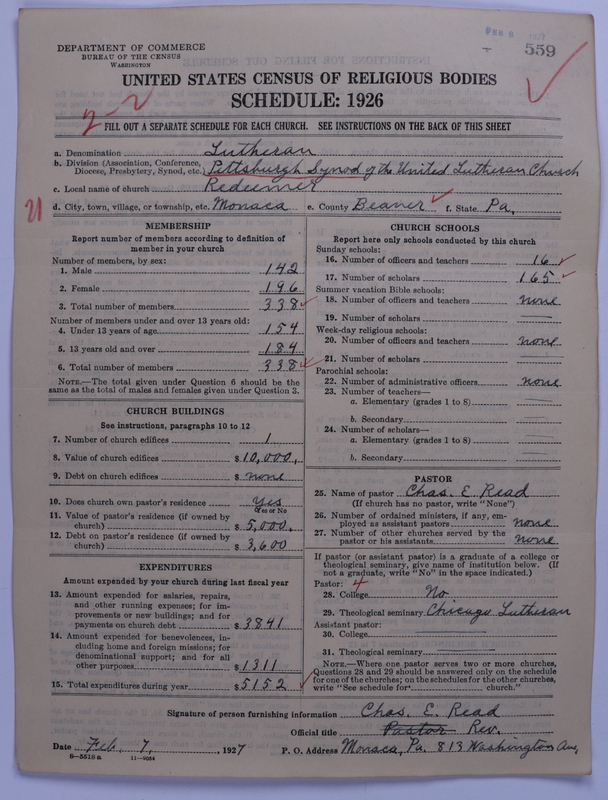 DEPARTMENT OF COMMERCE
BUREAU OF THE CENSUS
WASHINGTON
559
UNITED STATES CENSUS OF RELIGIOUS BODIES
SCHEDULE: 1926
2-2
FILL OUT A SEPARATE SCHEDULE FOR EACH CHURCH. SEE INSTRUCTIONS ON THE BACK OF THIS SHEET
a. Denomination Lutheran
b. Division (Association, Conference, Diocese, Presbytery, Synod, etc.) Pittsburgh Synod of the United Lutheran Church
c. Local name of church Redeemer
21
d. City, town, village, or township, etc. Monaca e. County Beaver f. State Pa.
MEMBERSHIP
Report number of members according to definition of
member in your church
Number of members, by sex:
1. Male 142
2. Female 196
3. Total number of members 338
Number of members under and over 13 years old:
4. Under 13 years of age 154
5. 13 years old and over 184
6. Total number of members 338
NOTE.—The total given under Question 6 should be
same as the total of males and females given under Question 3.
CHURCH BUILDINGS
See instructions, paragraphs 10 to 12
7. Number of church edifices 1
8. Value of church edifices $10,000.
9. Debt on church edifices $ none
10. Does church own pastor's residence Yes
Yes or No
11. Value of pastor's residence (if owned by
church) $5,000.
12. Debt on pastor's residence (if owned by
church) $3,600
EXPENDITURES
Amount expended by your church during last fiscal year
13. Amount expended for salaries, repairs,
and other running expenses; for im-
provements or new buildings; and for
payments on church debt $3841
14. Amount expended for benevolences, in-
cluding home and foreign missions; for
denominational support; and for all
other purposes $1311
15. Total expenditures during year $5152
CHURCH SCHOOLS
Report here only schools conducted by this church
Sunday schools:
16. Number of officers and teachers 16
17. Number of scholars 165
Summer vacation Bible schools:
18. Number of officers and teachers none
19. Number of scholars
Week-day religious schools:
20. Number of officers and teachers none
21. Number of scholars
Parochial schools:
22. Number of administrative officers none
23. Number of teachers—
a. Elementary (grades 1 to 8)
b. Secondary
24. Number of scholars—
a. Elementary (grades 1 to 8)
b. Secondary
PASTOR
25. Name of pastor Chas. E. Read
(If church has no pastor, write "None")
26. Number of ordained ministers, if any, em-
ployed as assistant pastors none
27. Number of other churches served by the
pastor or his assistants none
If pastor (or assistant pastor) is a graduate of a college or
theological seminary, give name of institution below. (If
not a graduate, write "No" in the space indicated.)
Pastor: 4
28. College No
29. Theological seminary Chicago Lutheran
Assistant pastor:
30. College
31. Theological seminary
NOTE.—Where one pastor serves two or more churches,
Questions 28 and 29 should be answered only on the schedule
for one of the churches; on the schedules for the other churches,
write "See schedule for church."
Signature of person furnishing information Chas. E. Read
Official title Pastor Rev.
Date Feb. 7, 1927 P. O. Address Monaca, Pa. 813 Washington Ave,
8-5518a 11-9054